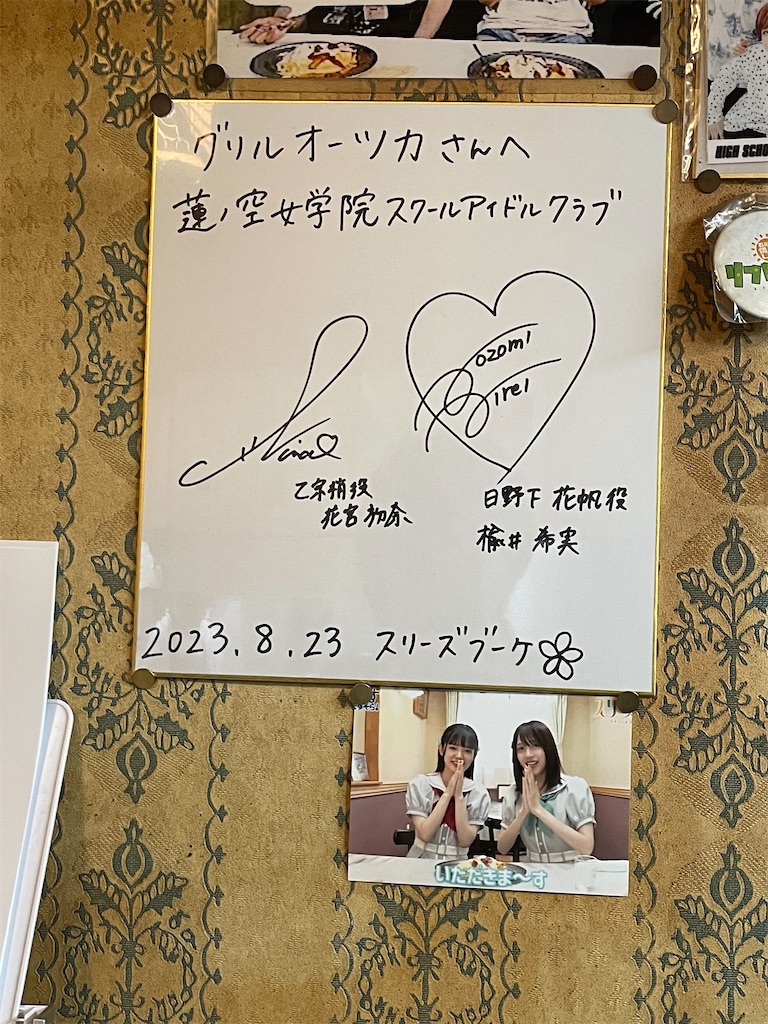 HIGH SCHO
グリルオーツカさんへ
蓮ノ空女学院スクールアイドルクラブ
Nina
Nozomi
Nirei
乙宗梢役
花宮初奈
日野下 花帆役
楡井 希実
2023.8.23 スリーズブーケ
いただきま～す